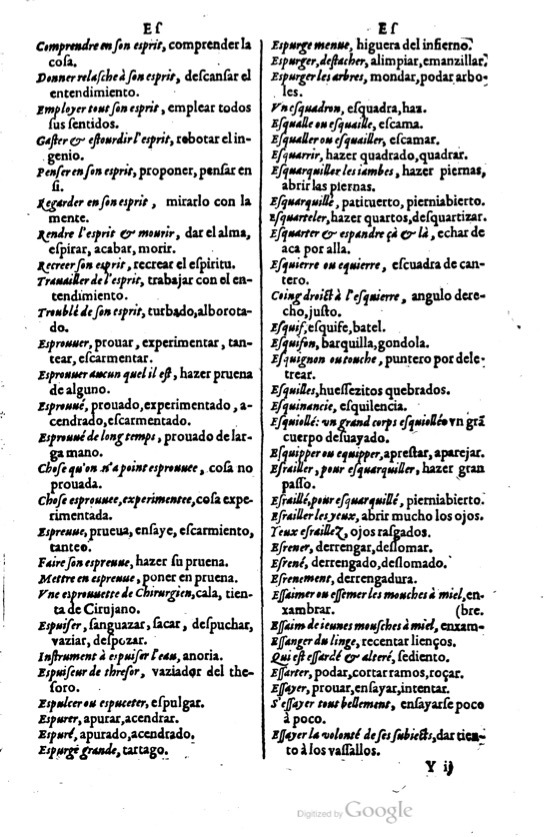 Eſ
Comprendre en ſon esprit, comprender la
coſa.
Donner relaſche à ſon esprit, deſcanſar el
entendimiento.
Employer tout ſon esprit, emplear todos
ſus ſentidos.
Gaſter & eſtourdir l'esprit, robotar el in-
genio.
Penſer en ſon esprit, proponer, penſar en
ſi.
Regarder en ſon esprit, mirarlo con la
mente.
Rendre l'esprit & mourir, dar el alma,
eſpirar, acabar, morir.
Recreer ſon esprit, recrear el eſpiritu.
Trauailler de l'esprit, trabajar con el en-
tendimiento.
Troublé de ſon esprit, turbado, alborota-
do.
Esprouuer, prouar, experimentar, tan-
tear, eſcarmentar.
Esprouuer aucun quel il eſt, hazer prueua
de alguno.
Esprouué, prouado, experimentado, a-
cendrado, eſcarmentado.
Esprouué de long temps, prouado de lar-
ga mano.
Choſe qu'on n'a point esprouuee, coſa no
prouada.
Choſe esprouuee, experimentee, coſa expe-
rimentada.
Espreuue, prueua, enſaye, eſcarmiento,
tanteo.
Faire ſon espreuue, hazer ſu prueua.
Mettre en espreuue, poner en prueua.
Vne esprouuette de Chirurgien, cala, tien-
ta de Cirujano.
Espuiſer, ſanguazar, ſacar, deſpuchar,
vaziar, deſpozar.
Inſtrument à espuiſer l'eau, anoria.
Espuiſeur de threſor, vaziador del the-
ſoro.
Espulcer ou espuceter, eſpulgar.
Espurer, apurar, acendrar.
Espuré, apurado, acendrado.
Espurge grande, tartago.
Eſ
Espurge menue, higuera del infierno.
Espurger, deſtacher, alimpiar, emanzillar.
Espurger les arbres, mondar, podar arbo-
les.
Vn esquadron, eſquadra, haz.
Eſqualle ou eſquaille, eſcama.
Eſqualler ou eſquailler, eſcamar.
Eſquarrir, hazer quadrado, quadrar.
Eſquarquiller les iambes, hazer piernas,
abrir las piernas.
Eſquarquillé, patituerto, pierniabierto.
Eſquarteler, hazer quartos, deſquartizar.
Eſquarter & espandre çà & là, echar de
aca por alla.
Eſquierre ou equierre, eſcuadra de can-
tero.
Coing droict à l'eſquierre, angulo dere-
cho, juſto.
Eſquif, eſquife, batel.
Eſquifon, barquilla, gondola.
Eſquignon ou touche, puntero por dele-
trear.
Eſquilles, hueſſezitos quebrados.
Eſquinancie, eſquilencia.
Eſquiollé: vn grand corps eſquiollé o vn grā
cuerpo deſuayado.
Eſquipper ou equipper, apreſtar, aparejar.
Eſrailler, pour eſquarquiller, hazer gran
paſſo.
Eſraillé, pour eſquarquillé, pierniabierto.
Eſrailler les yeux, abrir mucho los ojos.
Yeux eſraillez, ojos raſgados.
Eſrener, derrengar, deſlomar.
Eſrené, derrengado, deſlomado.
Eſrenement, derrengadura.
Eſſaimer ou eſſemer les mouches à miel, en-
xambrar. (bre.
Eſſaim de ieunes mouſches à miel, enxam-
Eſſanger du linge, recentar lienços.
Qui eſt eſſardé & alteré, ſediento.
Eſſarter, podar, cortar ramos, roçar.
Eſſayer, prouar, enſayar, intentar.
S'eſſayer tout bellement, enſayarſe poco
à poco.
Eſſayer la volonté de ſes ſubiects, dar tien-
to à los vaſſallos.
Y ij
Digitized by Google